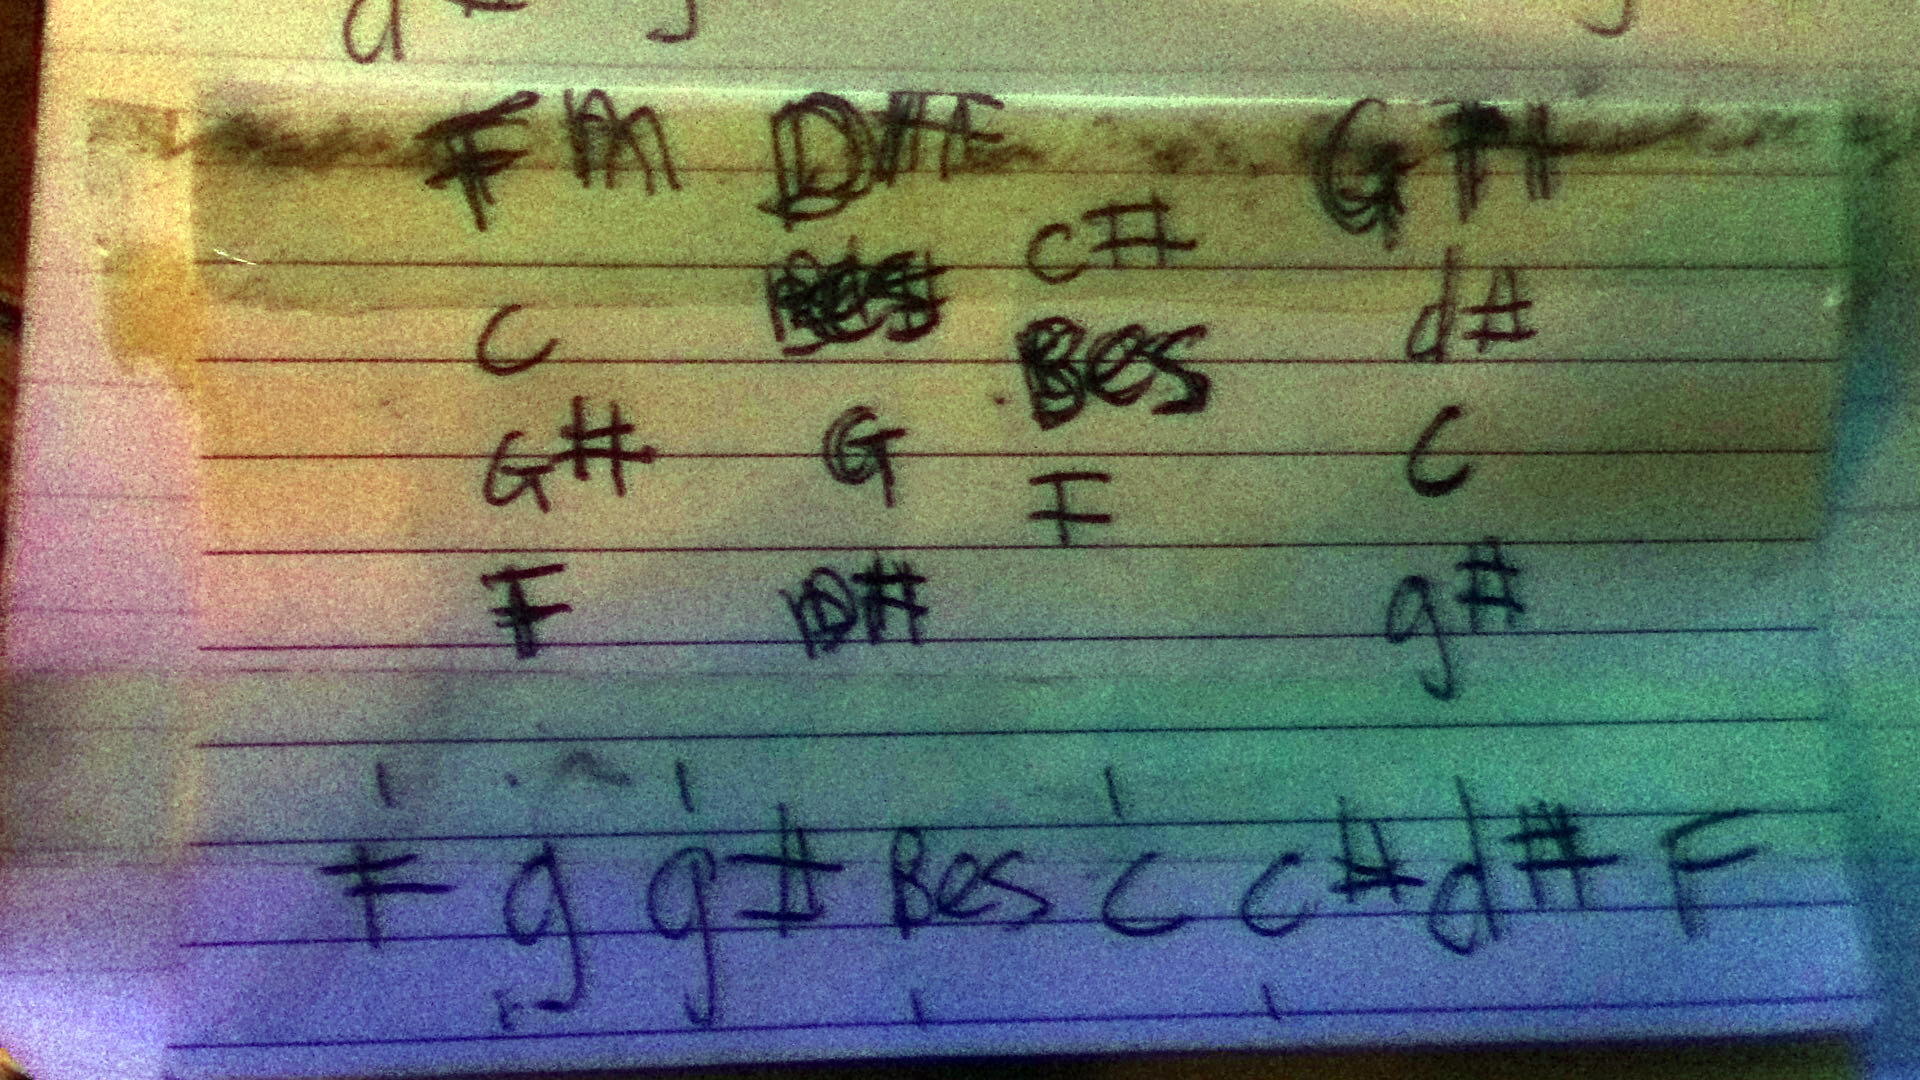 Fm D# G#
C#
Bes d#
C Bes
G# G C
F
F D# g#
F g g# Bes C C# d# F